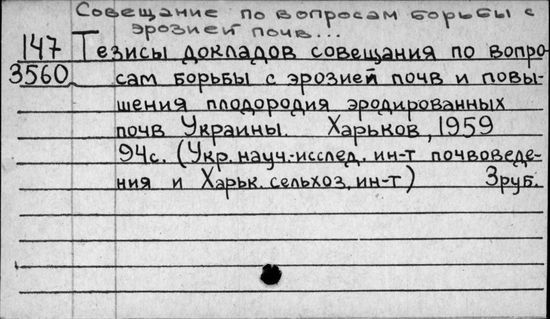 Совещание по вопросам борьбы с
эрозией почв...
147 Тезисы докладов совещания по вопро-
3560 сам борьбы с эрозией почв и повы-
шения плодородия эродированных
почв Украины. Харьков, 1959
94с. (Укр. науч.-исслед. ин-т почвоведе-
ния и Харьк. сельхоз. ин-т) 3руб.